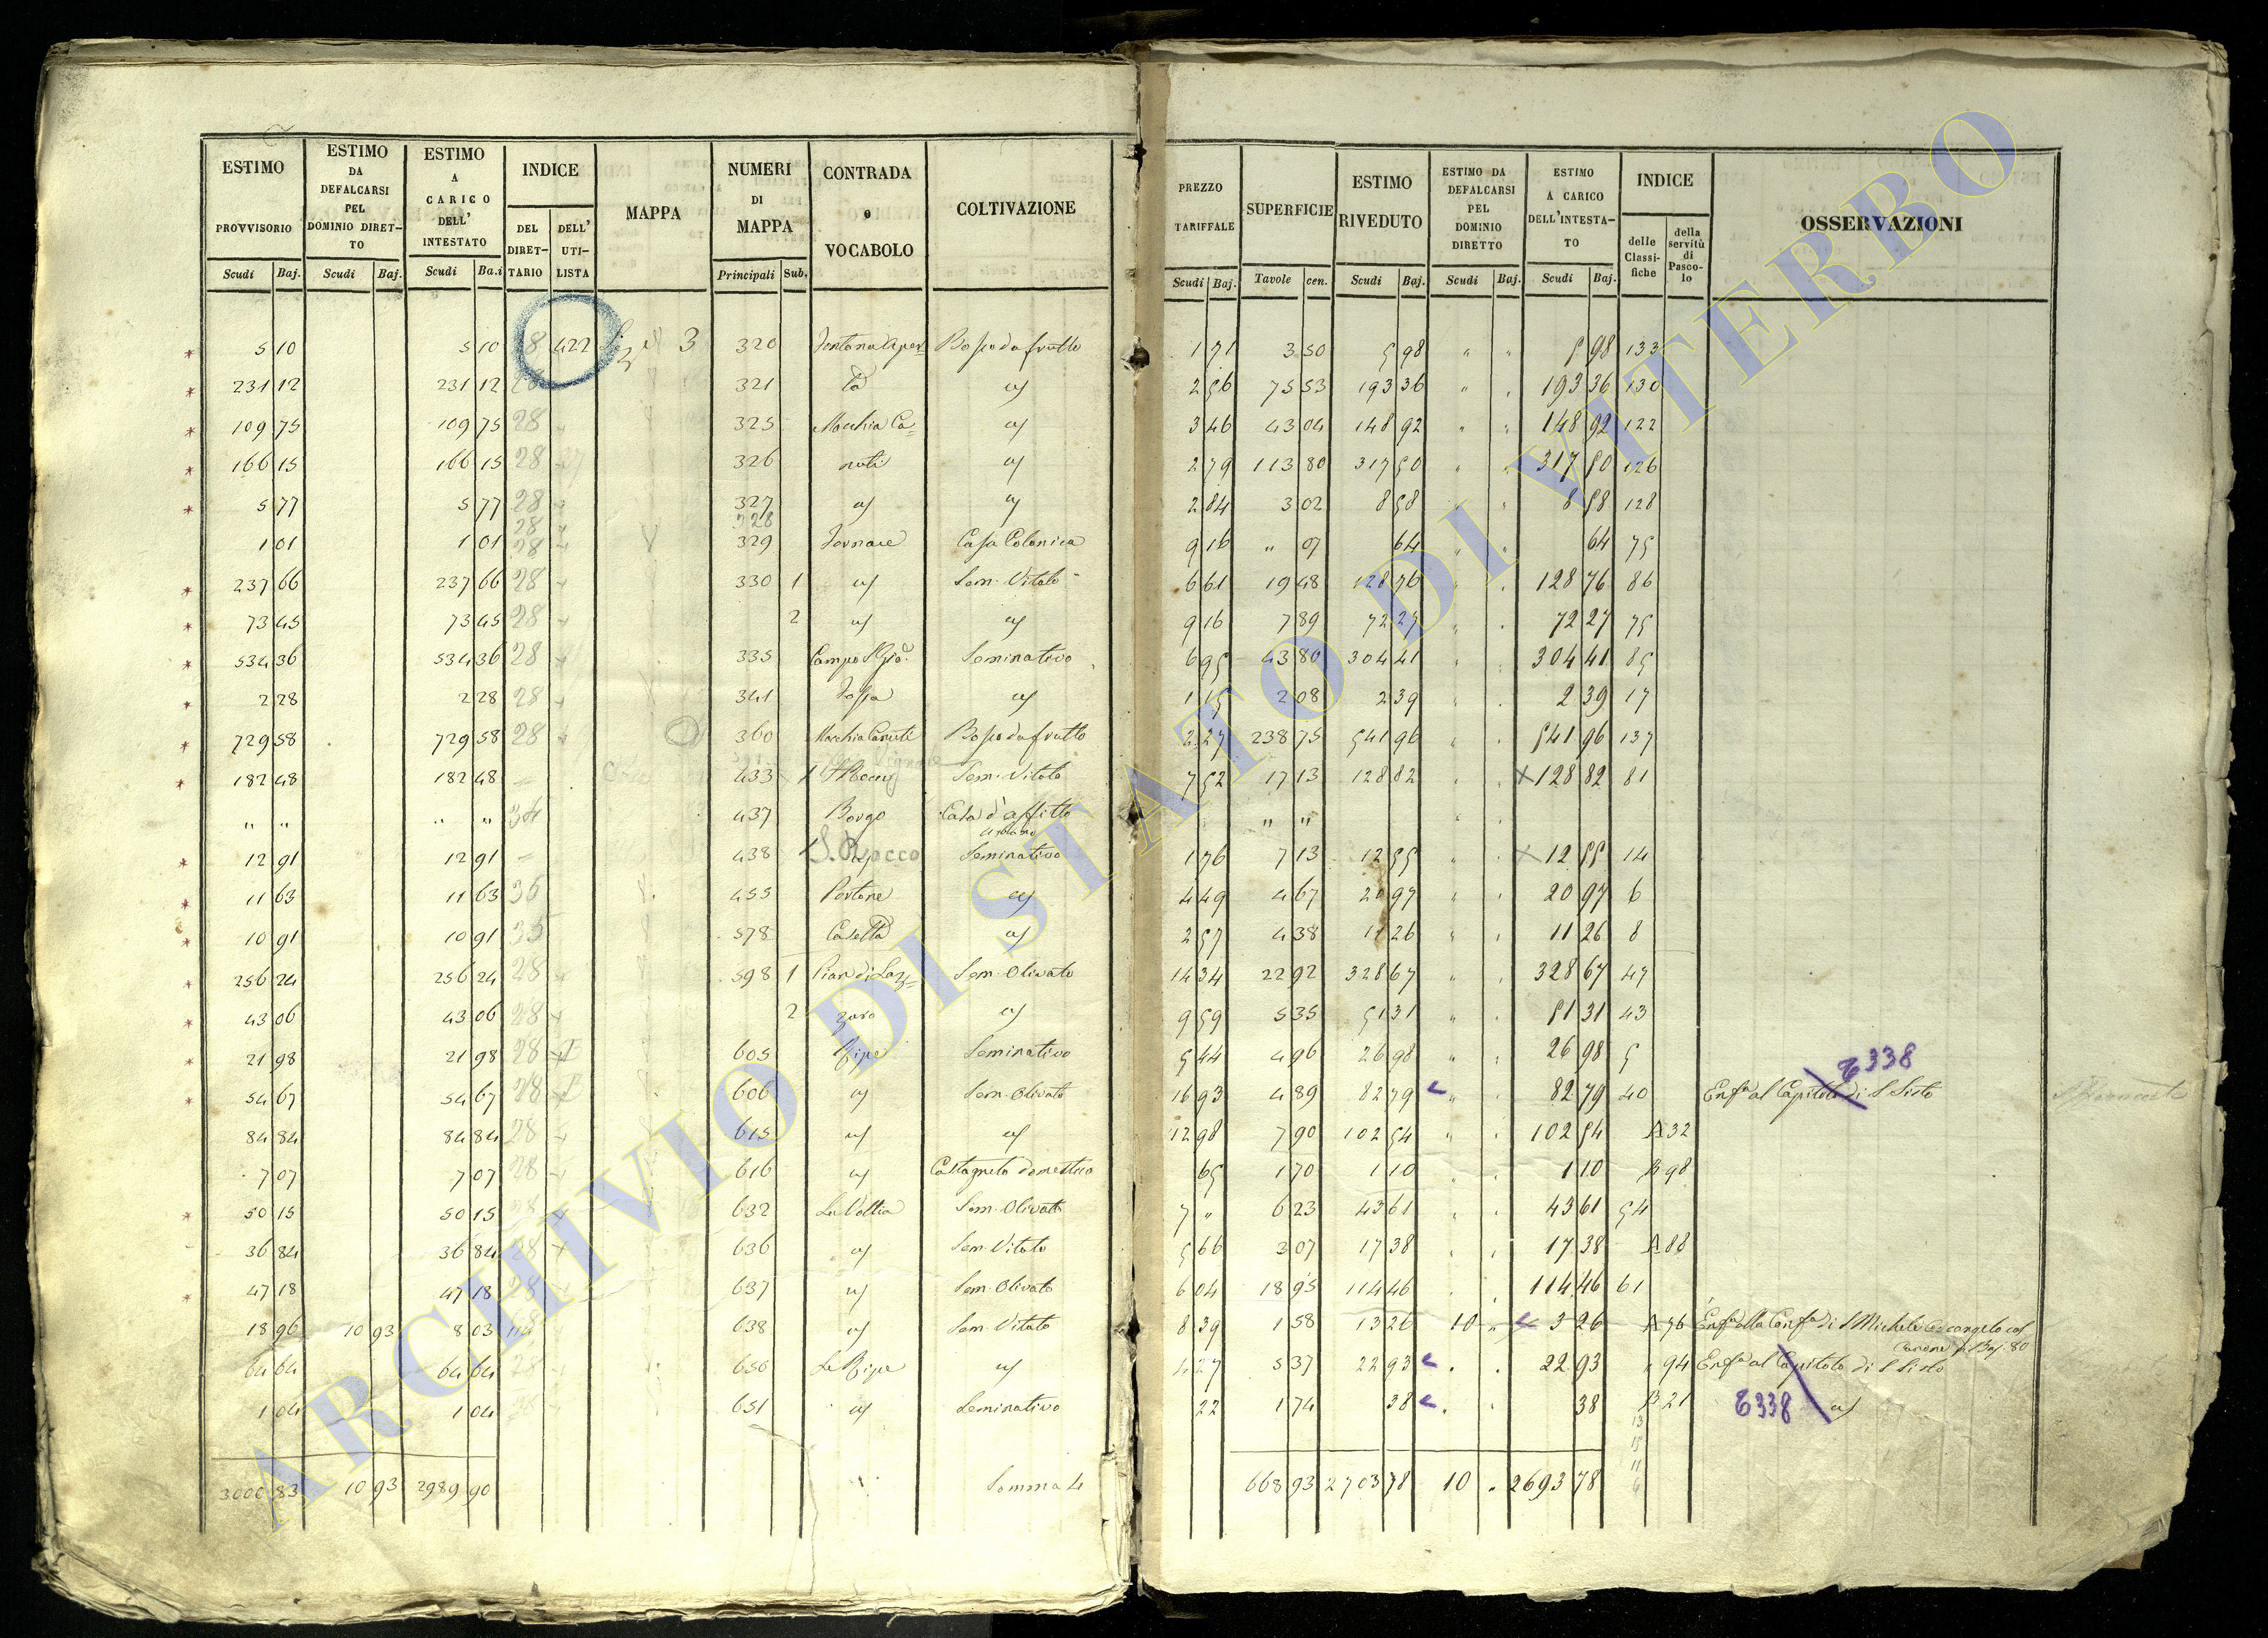 ESTIMO PROVVISORIO Scudi Baj. ESTIMO DA DEFALCARSI PEL DOMINIO DIRETTO Scudi Baj. ESTIMO A CARICO DELL' INTESTATO Scudi Ba.i INDICE DEL DIRETTARIO DELL' UTILISTA MAPPA NUMERI DI MAPPA Principali Sub. CONTRADA e VOCABOLO COLTIVAZIONE PREZZO TARIFFALE Scudi Baj. SUPERFICIE Tavole cen. ESTIMO RIVEDUTO Scudi Baj. ESTIMO DA DEFALCARSI PEL DOMINIO DIRETTO Scudi Baj. ESTIMO A CARICO DELL'INTESTATO Scudi Baj. INDICE delle Classifiche della servitù di Pascolo OSSERVAZIONI
5 10 5 10 28 422 3 320 Bosco da frutto 1 71 3 50 5 98 " " 5 98 133
231 12 231 12 28 321 2 56 75 53 193 36 " 193 36 130
109 75 109 75 28 325 Macchia Ca= 3 46 43 04 148 92 " " 148 92 122
166 15 166 15 28 326 nuti 2 79 113 80 317 50 " 317 50 126
5 77 5 77 28 327 2 84 3 02 8 58 " 8 58 128
28 328
1 01 1 01 28 329 Fornace Casa Colonica 9 16 " 07 64 64 75
237 66 237 66 28 330 1 Sem. Vitato 6 61 19 48 128 76 128 76 86
73 45 73 45 28 2 9 16 7 89 72 27 72 27 75
534 36 534 36 28 335 Seminativo 6 95 43 80 304 41 304 41 85
2 28 2 28 28 341 Fossa 1 15 2 08 2 39 2 39 17
729 58 729 58 28 360 Macchia Canuti Bosco da frutto 2 27 238 75 541 96 541 96 137
182 48 182 48 433 1 S Rocco Sem. Vitato 7 52 17 13 128 82 128 82 81
" " " " 34 437 Borgo Casa d'affitto " "
12 91 12 91 438 S. Rocco Seminativo 1 76 7 13 12 55 12 55 14
11 63 11 63 35 455 Portone 4 49 4 67 20 97 20 97 6
10 91 10 91 35 578 Casetta 2 57 4 38 11 26 11 26 8
256 24 256 24 28 598 1 Pian di Laz= Sem. Olivato 14 34 22 92 328 67 328 67 47
43 06 43 06 28 2 zaro 9 59 5 35 51 31 51 31 43
21 98 21 98 28 605 Ripe Seminativo 5 44 4 96 26 98 26 98 5
6338
54 67 54 67 28 606 Sem. Olivato 16 93 4 89 82 79 82 79 40 Enf.a al Capitolo di S Sisto
84 84 84 84 28 615 12 98 7 90 102 54 102 54 A 32
7 07 7 07 28 616 Castagneto domestico 65 1 70 1 10 1 10 B 98
50 15 50 15 28 632 Sem. Olivato 7 " 6 23 43 61 43 61 54
36 84 36 84 28 636 Sem. Vitato 5 66 3 07 17 38 17 38 A 88
47 18 47 18 28 637 Sem. Olivato 6 04 18 95 114 46 114 46 61
18 96 10 93 8 03 638 Sem. Vitato 8 39 1 58 13 26 10 " 3 26 A 76 Enf.a alla Conf.a di S Michele Arcangelo col
Canone 80
64 64 64 64 28 650 Le Ripe 4 27 5 37 22 93 22 93 94 Enf.a al Capitolo di S Sisto
1 04 1 04 28 651 Seminativo 22 1 74 38 38 B 21 6338
3000 83 10 93 2989 90 Somma 668 93 2703 78 10 2693 78
ARCHIVIO DI STATO DI VITERBO